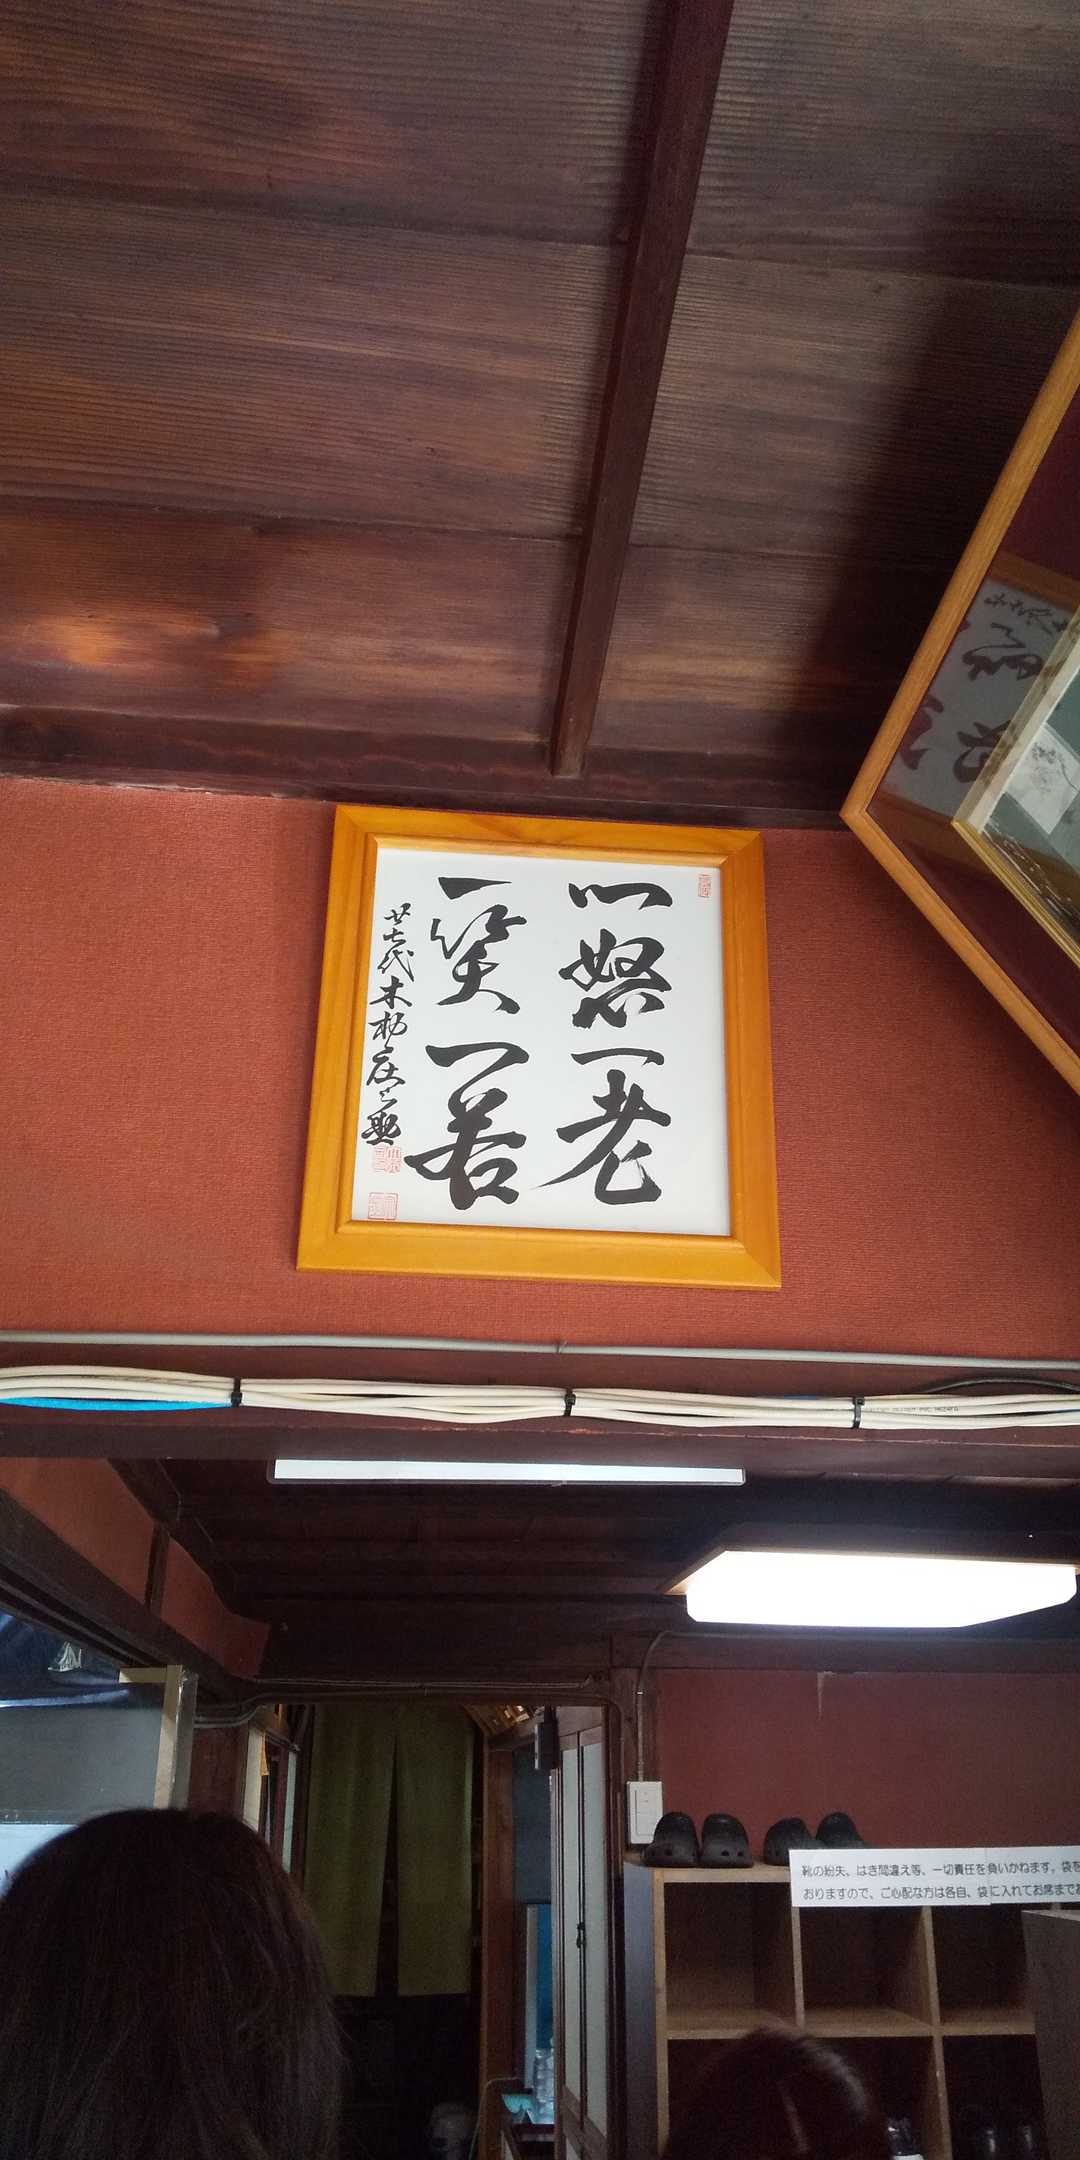 一怒一老
一笑一若
廿七代木村庄之助
靴の紛失、はき間違え等、一切責任を負いかねます。袋を
おりますので、ご心配な方は各自、袋に入れてお席までお